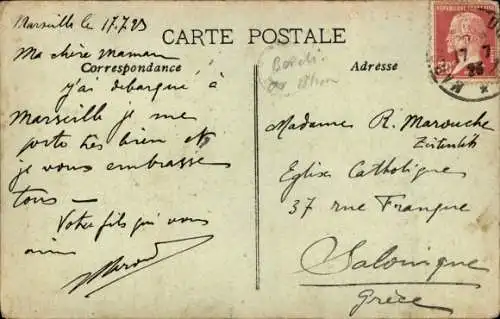 Marseille le 17.7.23
CARTE POSTALE
Ma chère maman
Correspondance
j'ai debarqué à
Marseille je me
porte très bien et
je vous embrasse
tous —
Votre fils qui vous
aime
Adresse
Madame R. Marouche
Zeitenlik
Eglise Catholique
37 rue Franque
Salonique
Grèce